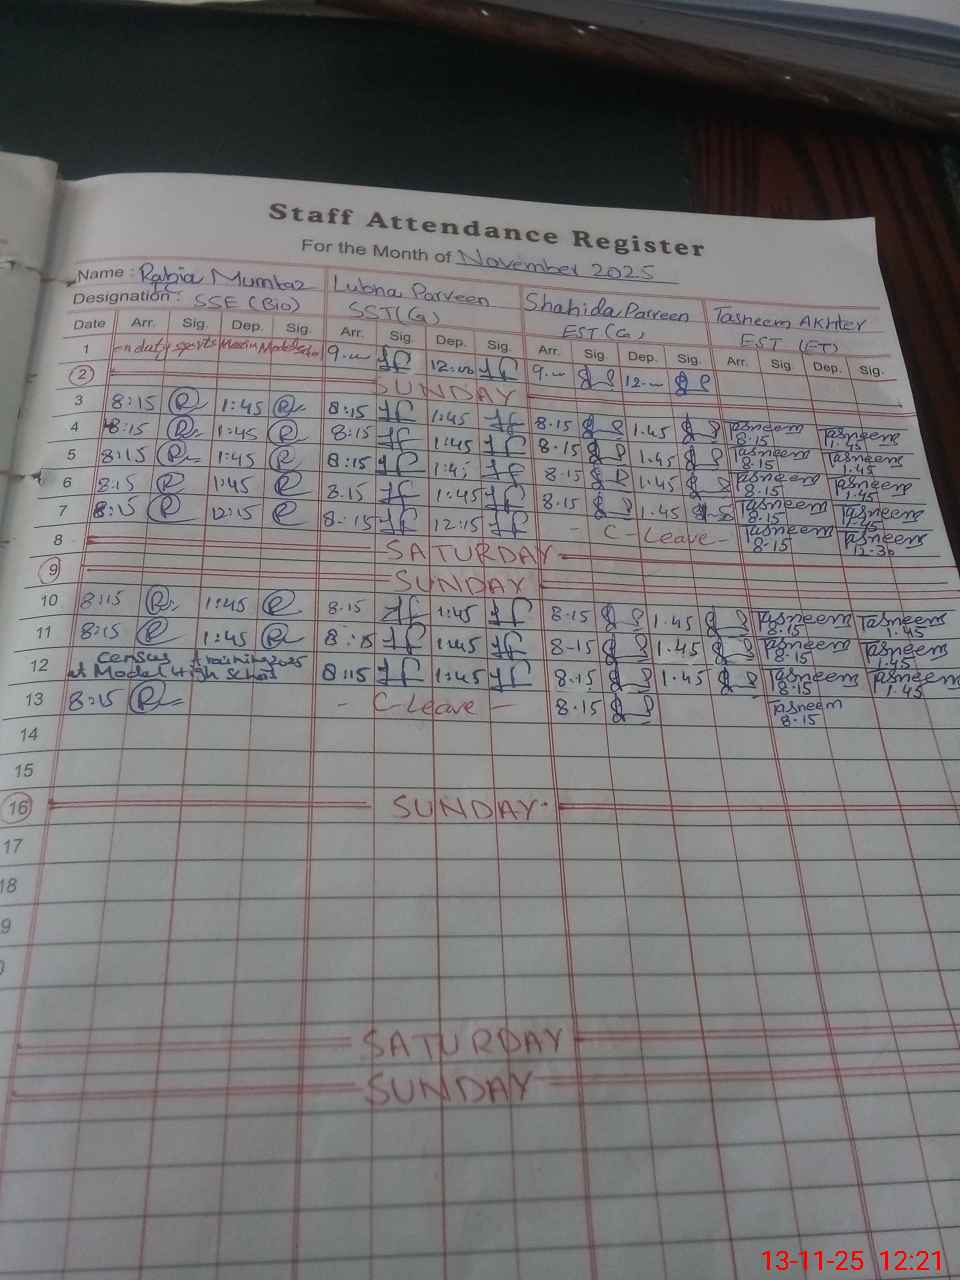 Staff Attendance Register
For the Month of November 2025
Name : Rabia Mumtaz Lubna Parveen Shahida Parveen Tasneem Akhter
Designation : SSE (Bio) SST(G) EST(G) EST (ET)
Date Arr. Sig. Dep. Sig. Arr. Sig. Dep. Sig. Arr. Sig Dep. Sig. Arr. Sig. Dep. Sig.
1 on duty sports 9.00 12:00 9.00 12.00
2 SUNDAY
3 8:15 1:45 8:15 1:45 8.15 1.45 Tasneem 8.15 Tasneem 1.45
4 8:15 1:45 8:15 1:45 8.15 1.45 Tasneem 8.15 Tasneem 1.45
5 8:15 1:45 8:15 1:45 8.15 1.45 Tasneem 8.15 Tasneem 1.45
6 8:15 1:45 8.15 1:45 8.15 1.45 Tasneem 8.15 Tasneem 1.45
7 8:15 12:15 8:15 12:15 - C - Leave - Tasneem 8.15 Tasneem 12.30
8 SATURDAY
9 SUNDAY
10 8:15 1:45 8.15 1:45 8.15 1.45 Tasneem 8.15 Tasneem 1.45
11 8:15 1:45 8:15 1:45 8-15 1.45 Tasneem 8.15 Tasneem 1.45
12 Census training 2025 at Model High School 8:15 1:45 8.15 1.45 Tasneem 8.15 Tasneem 1.45
13 8:15 - C Leave - 8.15 Tasneem 8.15
14
15
16 SUNDAY
17
18
9
SATURDAY
SUNDAY
13-11-25 12:21